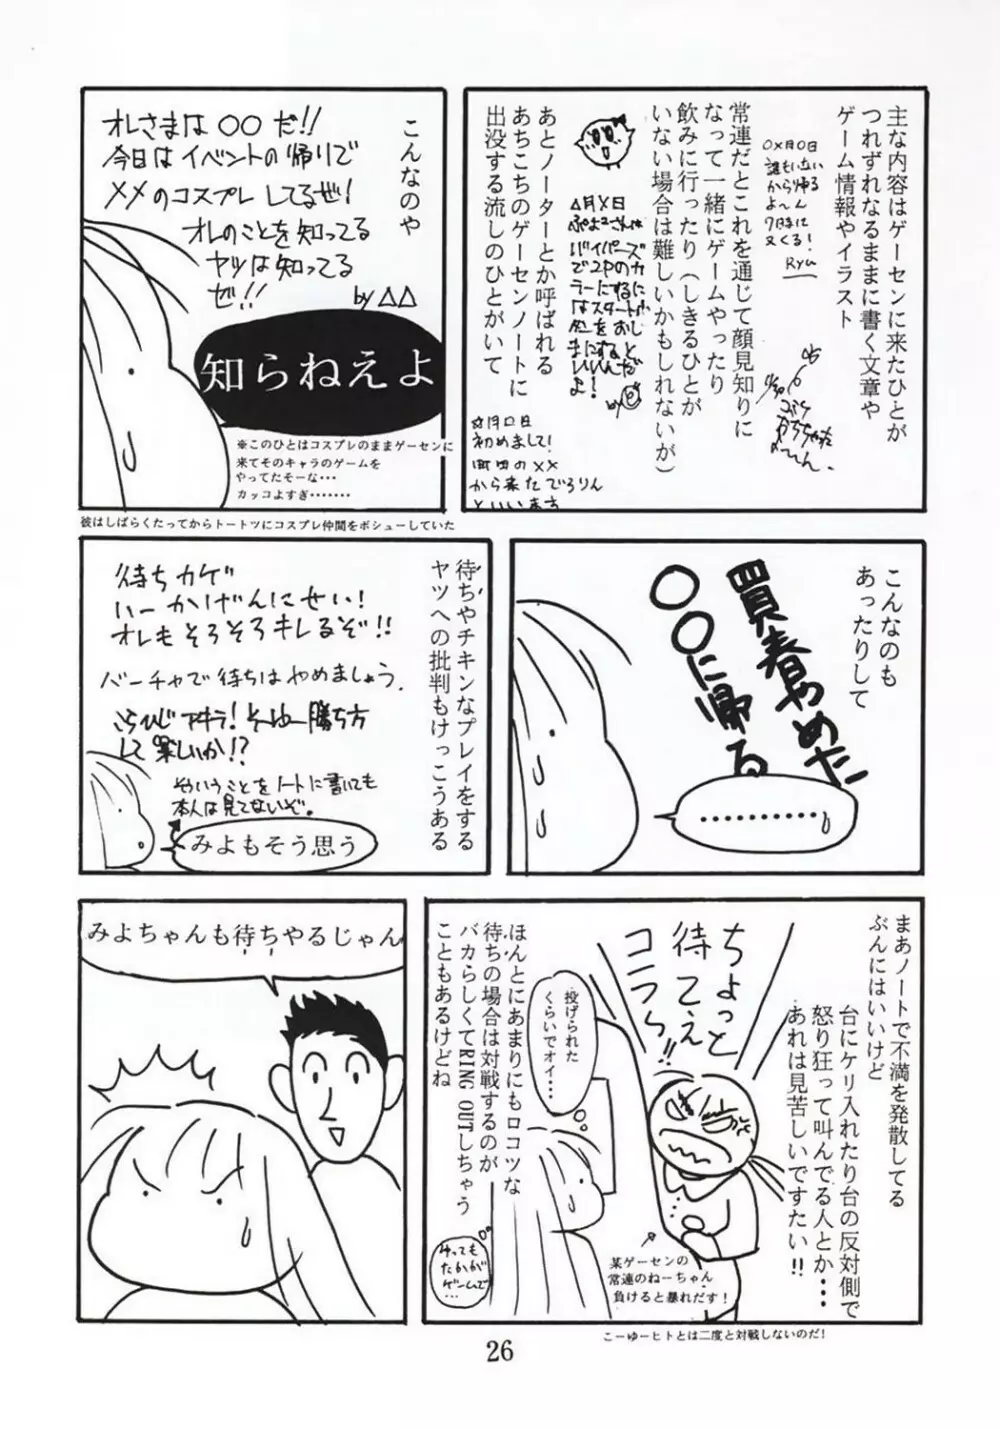 主な内容はゲーセンに来たひとが
つれずれなるままに書く文章や
ゲーム情報やイラスト
○×月○日
誰もいない
から帰る
よ〜ん
7時に
又くる!
Ryu
常連だとこれを通じて顔見知りに
なって一緒にゲームやったり
飲みに行ったり(しきるひとが
いない場合は難しいかもしれないが)
△月×日
by
あとノーターとか呼ばれる
あちこちのゲーセンノートに
出没する流しのひとがいて
初めまして!
町田の××
から来たでろりん
といいます
こんなのや
オレさまは○○だ!!
今日はイベントの帰りで
××のコスプレしてるぜ!
オレのことを知ってる
ヤツは知ってる
ぜ!!
by △△
知らねえよ
※このひとはコスプレのままゲーセンに
来てそのキャラのゲームを
やってたそーな…
カッコよすぎ………
彼はしばらくたってからトートツにコスプレ仲間をボシューしていた
こんなのも
あったりして
買春やめた
○○に帰る
…………
待ちやチキンなプレイをする
ヤツへの批判もけっこうある
待ちカゲ
いーかげんにせい!
オレもそろそろキレるぞ!!
バーチャで待ちはやめましょう.
うらひじアキラ!そゆー勝ち方
して楽しいか!?
そういうことをノートに書いても
本人は見てないぞ。
みよもそう思う
まあノートで不満を発散してる
ぶんにはいいけど
台にケリ入れたり台の反対側で
怒り狂って叫んでる人とか…
あれは見苦しいですたい!!
ちょっと
待てぇ
コラら!!
投げられた
くらいでオイ…
某ゲーセンの
常連のねーちゃん
負けると暴れだす!
ほんとにあまりにもロコツな
待ちの場合は対戦するのが
バカらしくてRING OUTしちゃう
こともあるけどね
たかが
ゲームで
…
こーゆーヒトとは二度と対戦しないのだ!
みよちゃんも待ちやるじゃん
26